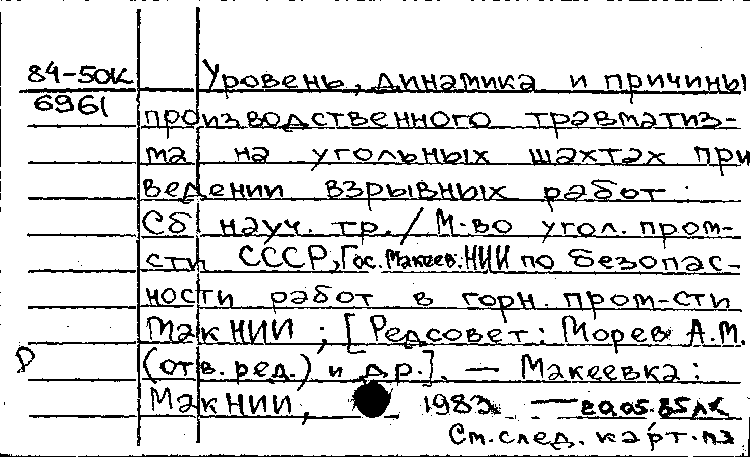 84-50к
6961
Уровень, динамика и причины
производственного травматиз-
ма на угольных шахтах при
ведении взрывных работ :
Сб науч. тр. / М-во угол. пром-
сти СССР, Гос. Макеев. НИИ по безопас-
ности работ в горн. пром-сти
МакНИИ ; [Редсовет: Морев А.М.
(отв. ред.) и др.]. — Макеевка :
МакНИИ, 1983 —
См. след. карт.